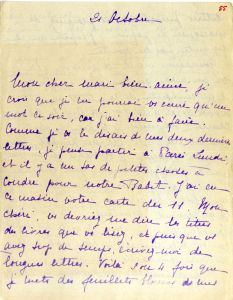 55
31 Octobre
Mon cher mari bien aimé, je
crois que je ne pourrai vs écrire qu'un
mot ce soir, car j'ai bien à faire.
Comme je vs le disais ds mes deux dernières
lettres, je pense partir à Paris Lundi
et il y a un tas de petites choses à
coudre pour notre Babit. J'ai eu
ce matin votre carte du 11. Mon
chéri, vs devriez me dire les titres
des livres que vs lisez, et puisque vs
avez trop de temps, écrivez-moi de
longues lettres. Voilà 3 ou 4 fois que
je mets des feuillets blancs ds mes